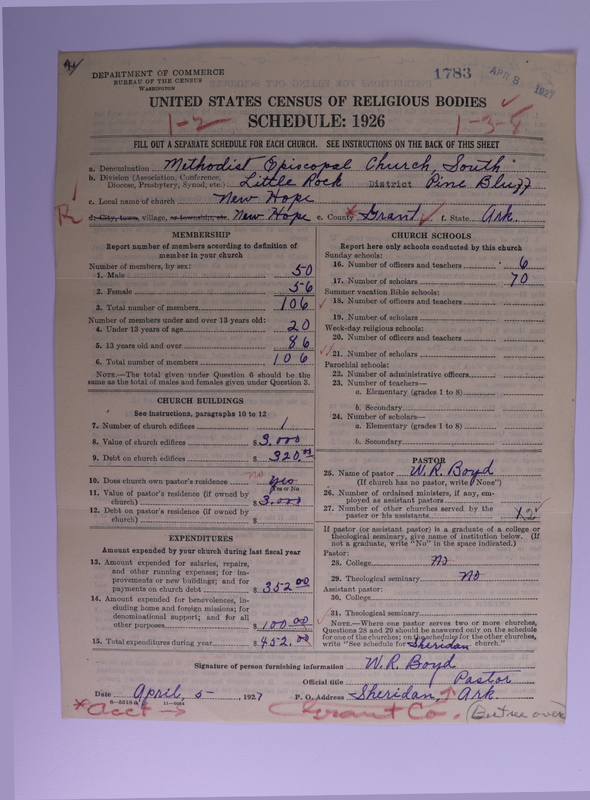 DEPARTMENT OF COMMERCE
BUREAU OF THE CENSUS
WASHINGTON
1783
APR 8 1927
UNITED STATES CENSUS OF RELIGIOUS BODIES
SCHEDULE: 1926
1-2
1-3-8
FILL OUT A SEPARATE SCHEDULE FOR EACH CHURCH. SEE INSTRUCTIONS ON THE BACK OF THIS SHEET
a. Denomination Methodist Episcopal Church, South
b. Division (Association, Conference, Diocese, Presbytery, Synod, etc.) Little Rock District Pine Bluff
c. Local name of church New Hope
d. City, town, village, or township, etc. New Hope e. County Grant f. State Ark
MEMBERSHIP
Report number of members according to definition of
member in your church
Number of members, by sex:
1. Male 50
2. Female 56
3. Total number of members 106
Number of members under and over 13 years old:
4. Under 13 years of age 20
5. 13 years old and over 86
6. Total number of members 106
NOTE.—The total given under Question 6 should be the
same as the total of males and females given under Question 3.
CHURCH BUILDINGS
See instructions, paragraphs 10 to 12
7. Number of church edifices 1
8. Value of church edifices $ 3,000
9. Debt on church edifices $ 320.00
10. Does church own pastor's residence? no yes
Yes or No
11. Value of pastor's residence (if owned by
church) $ 3,000
12. Debt on pastor's residence (if owned by
church) $
EXPENDITURES
Amount expended by your church during last fiscal year
13. Amount expended for salaries, repairs,
and other running expenses; for im-
provements or new buildings; and for
payments on church debt $ 352.00
14. Amount expended for benevolences, in-
cluding home and foreign missions; for
denominational support; and for all
other purposes $ 100.00
15. Total expenditures during year $ 452.00
CHURCH SCHOOLS
Report here only schools conducted by this church
Sunday schools:
16. Number of officers and teachers 6
17. Number of scholars 70
Summer vacation Bible schools:
18. Number of officers and teachers
19. Number of scholars
Week-day religious schools:
20. Number of officers and teachers
21. Number of scholars
Parochial schools:
22. Number of administrative officers
23. Number of teachers—
a. Elementary (grades 1 to 8)
b. Secondary
24. Number of scholars—
a. Elementary (grades 1 to 8)
b. Secondary
PASTOR
25. Name of pastor W. R. Boyd
(If church has no pastor, write "None")
26. Number of ordained ministers, if any, em-
ployed as assistant pastors
27. Number of other churches served by the
pastor or his assistants
If pastor (or assistant pastor) is a graduate of a college or
theological seminary, give name of institution below. (If
not a graduate, write "No" in the space indicated.)
Pastor:
28. College No
29. Theological seminary no
Assistant pastor:
30. College
31. Theological seminary
NOTE.—Where one pastor serves two or more churches,
Questions 28 and 29 should be answered only on the schedule
for one of the churches; on the schedules for the other churches,
write "See schedule for Sheridan church."
Signature of person furnishing information W. R. Boyd
Official title Pastor
Date April, 5, 1927 P. O. Address Sheridan, Ark
11-6084
*acct → Grant Co.